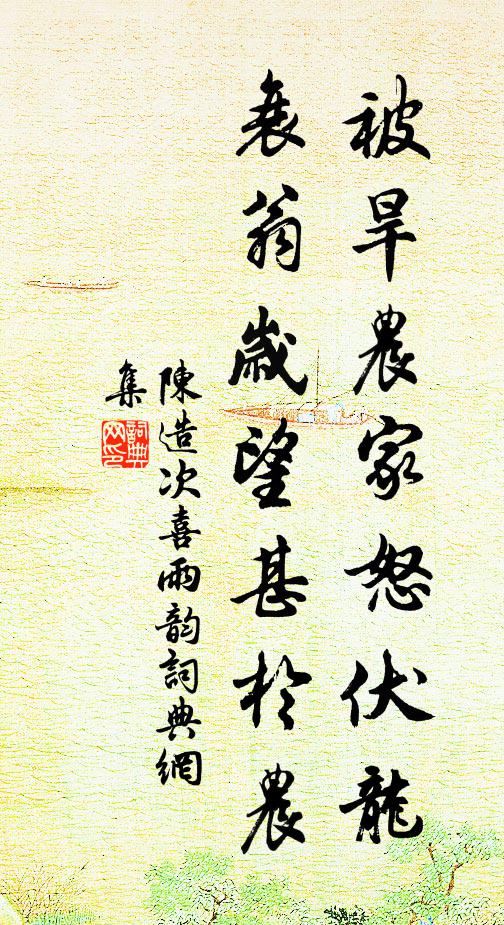 被旱農家怒伏龍
衰翁歲望甚於農
陳造次喜雨韵詞典網
集
詞典網印